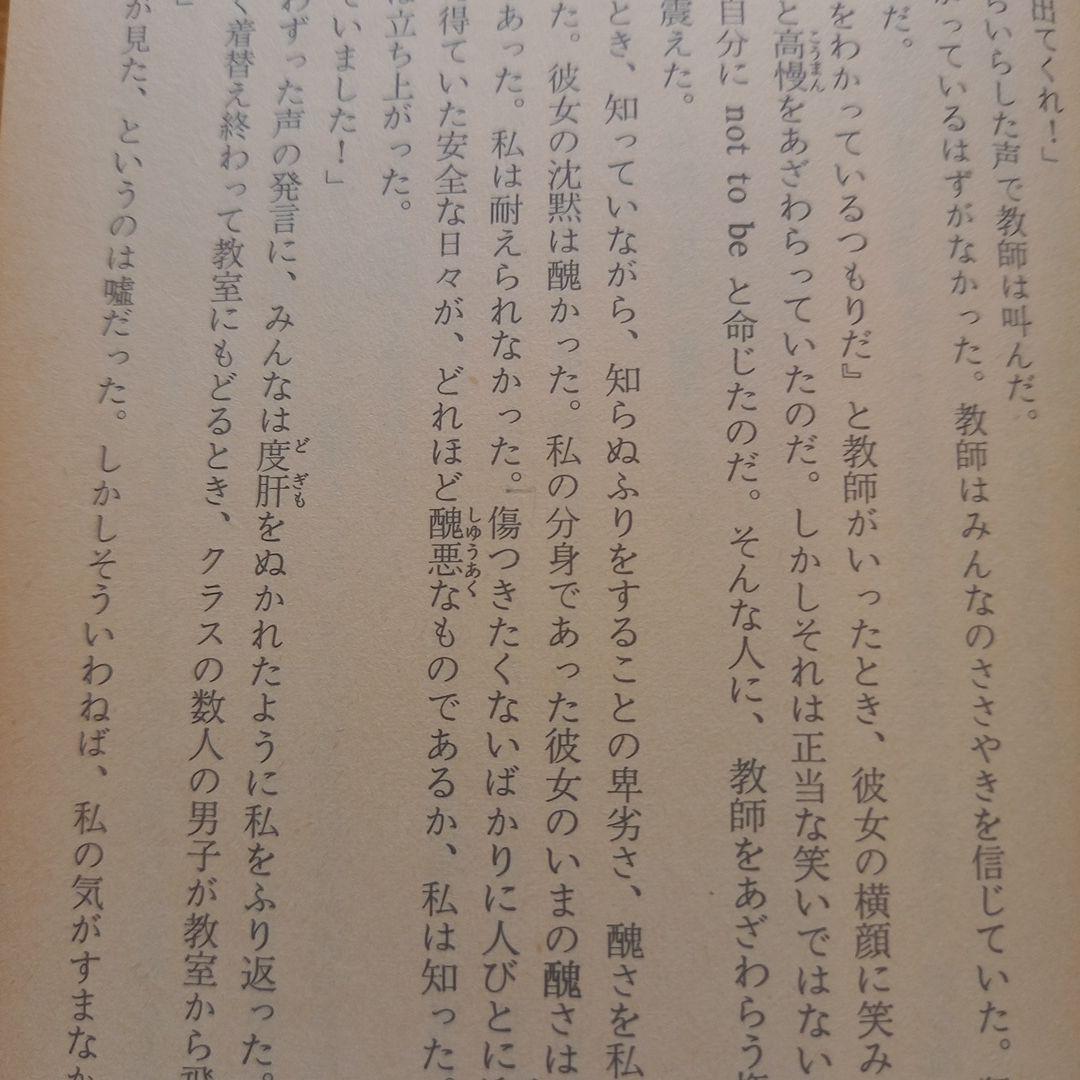 出てくれ！」
らいらした声で教師は叫んだ。
っているはずがなかった。教師はみんなのささやきを信じていた。
だ。
をわかっているつもりだ』と教師がいったとき、彼女の横顔に笑み
と高慢をあざわらっていたのだ。しかしそれは正当な笑いではない
自分に not to be と命じたのだ。そんな人に、教師をあざわらう
震えた。
とき、知っていながら、知らぬふりをすることの卑劣さ、醜さを私
た。彼女の沈黙は醜かった。私の分身であった彼女のいまの醜さは
あった。私は耐えられなかった。傷つきたくないばかりに人びとに
得ていた安全な日々が、どれほど醜悪なものであるか、私は知った。
立ち上がった。
ていました！」
わずった声の発言に、みんなは度肝をぬかれたように私をふり返った。
く着替え終わって教室にもどるとき、クラスの数人の男子が教室から飛
」
が見た、というのは嘘だった。しかしそういわねば、私の気がすまなか